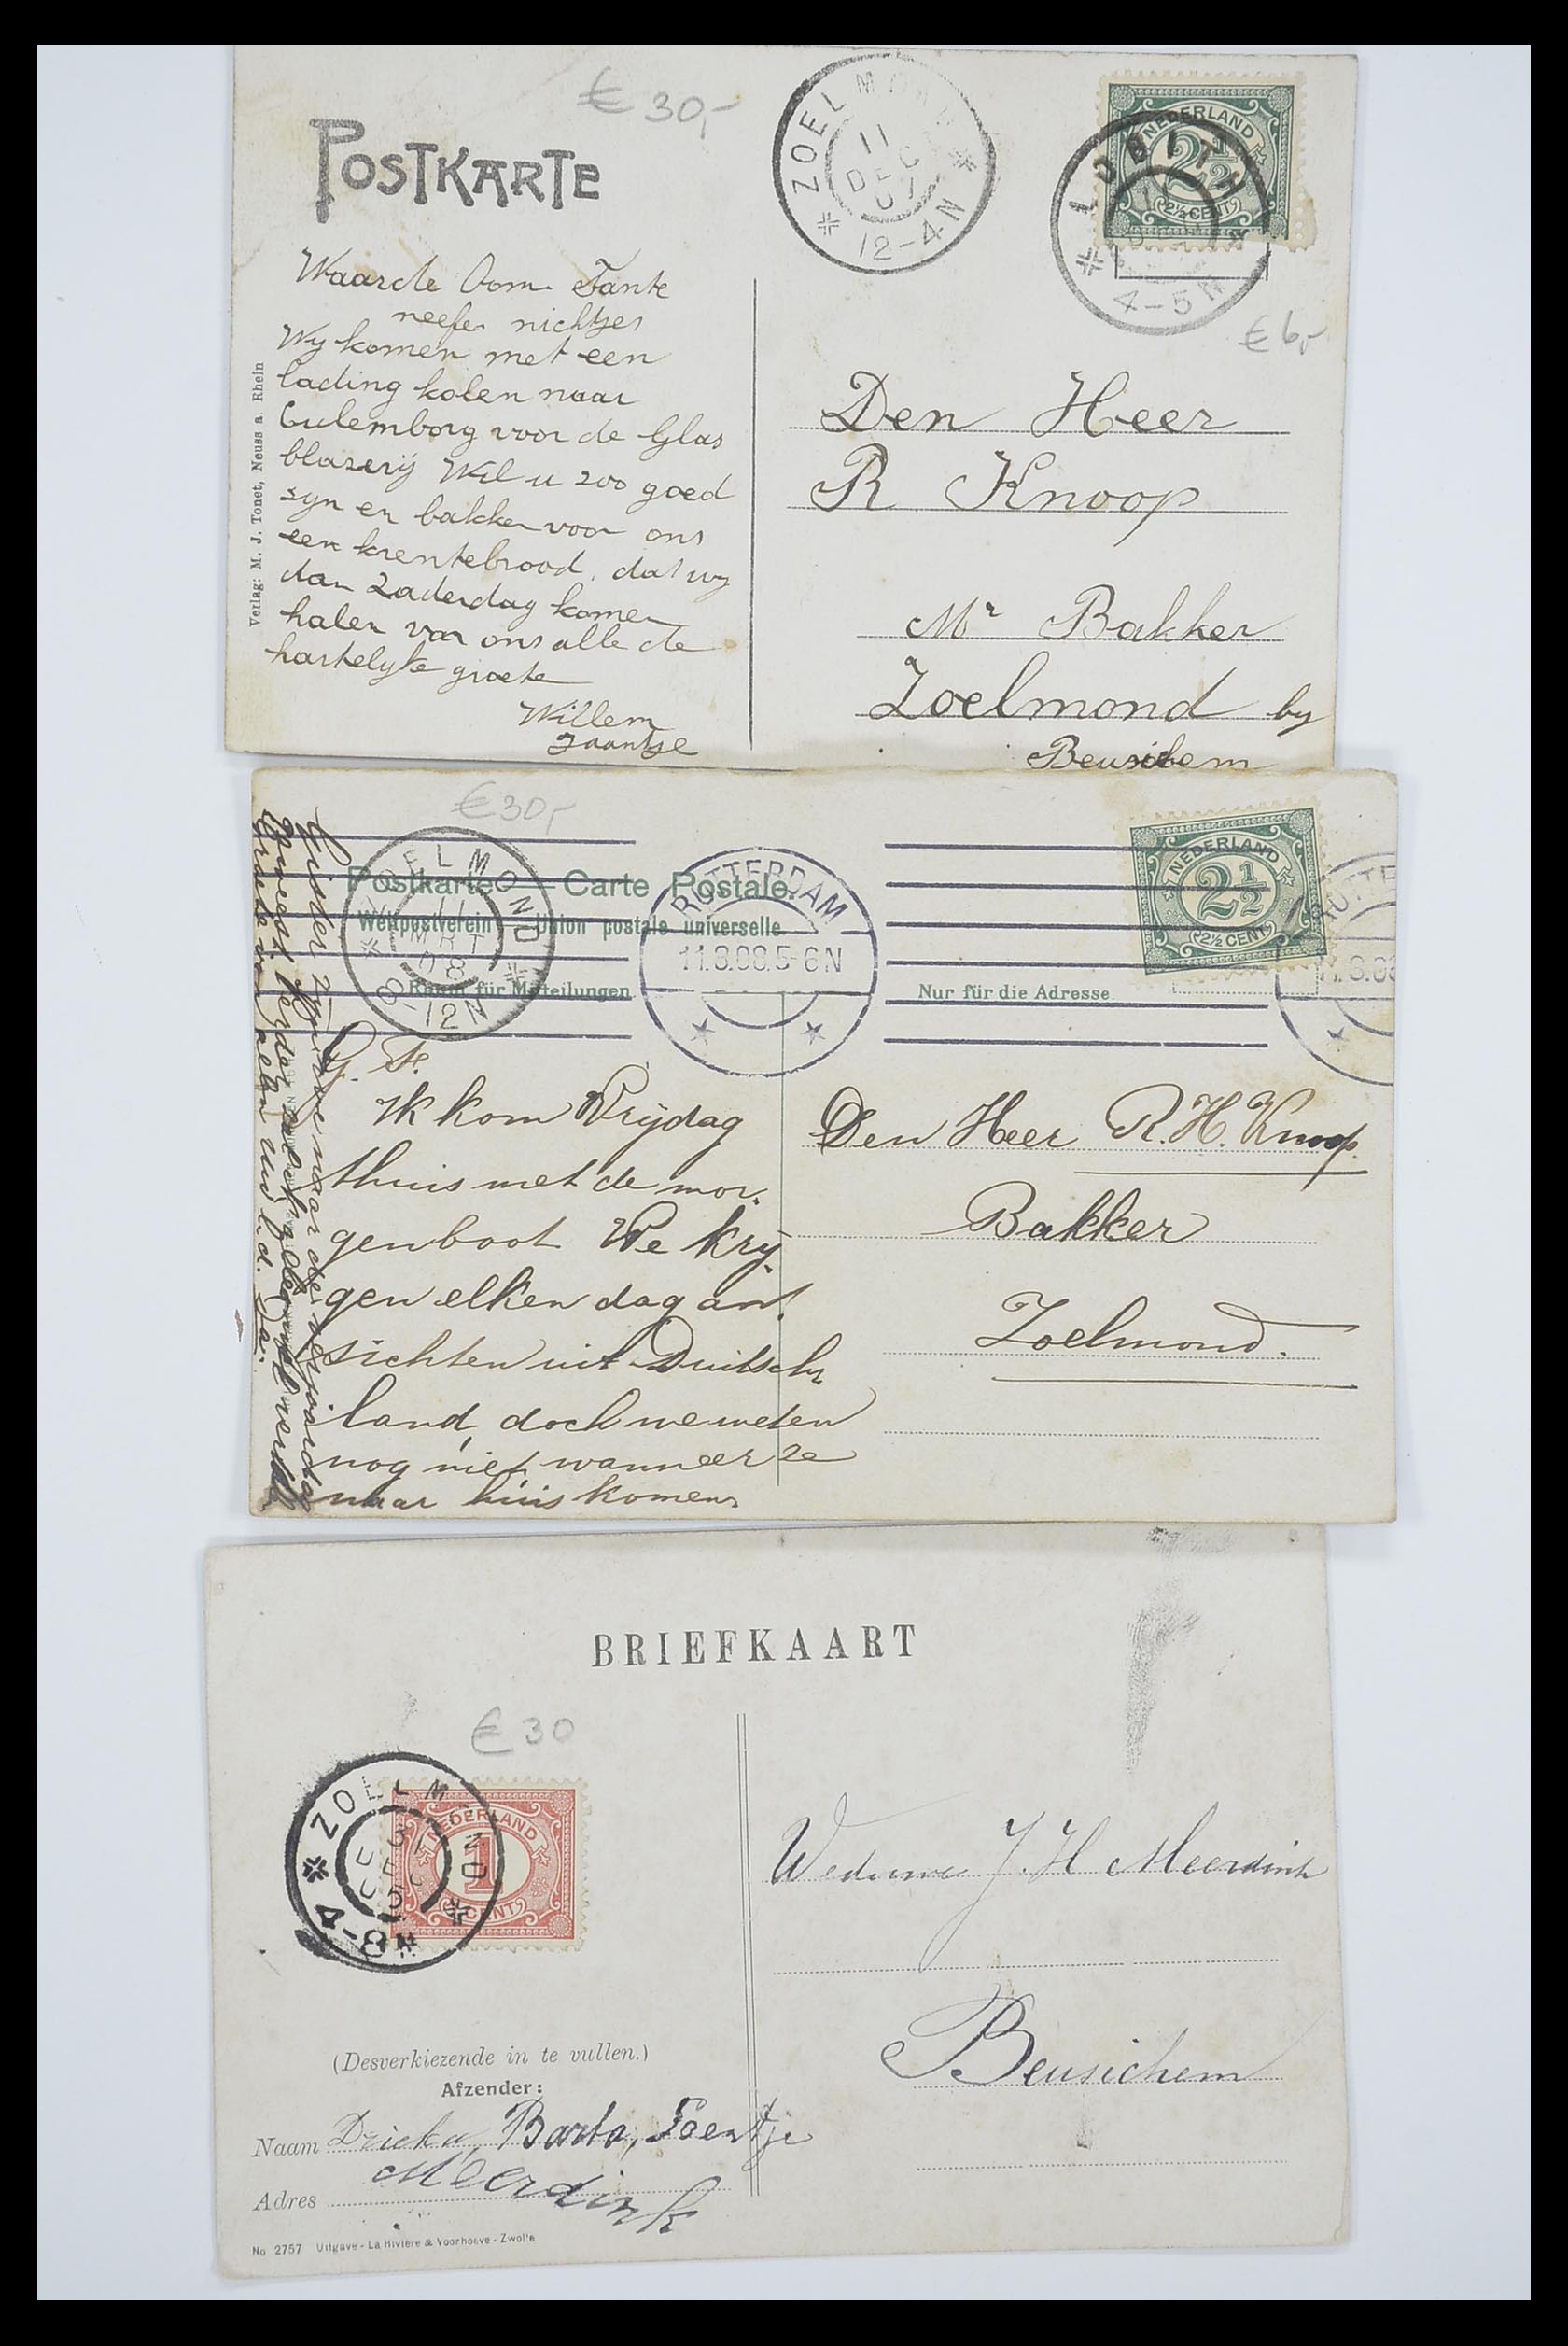 € 30,-
POSTKARTE
ZOELMOND
11
DEC
07
12-4N
NEDERLAND
2½
2½ CENT
LOBITH
4-5N
€ 6,-
Waarde Oom Tante
neefe nichtjes
Wy komen met een
lading kolen naar
Culemborg voor de Glas
blazerij Wil u zoo goed
zyn en bakken voor ons
een krentebrood, dat wy
dan Zaderdag komen
halen van ons alle de
hartelyke groete
Willem
Jaantje
Verlag: M. J. Tonet, Neuss a. Rhein
Den Heer
R Knoop
Mr Bakker
Zoelmond by
Beusichem
€30,-
ZOELMOND
11
MRT
08
8-12N
Postkarte — Carte Postale.
Weltpostverein Union postale universelle
Raum für Mitteilungen
Nur für die Adresse
ROTTERDAM
11.3.08.5-6N
NEDERLAND
2½
2½ CENT
ROTTE
11.3.08
G. F.
Ik kom Vrijdag
thuis met de mor-
genboot We krij-
gen elken dag an-
sichten uit Duitsch
land, doch we weten
nog niet wanneer ze
naar huis komen
Gister zyn we naar de verjaardag
Groete van allen Uw l. d. Da.
Den Heer R. H. Knoop.
Bakker
Zoelmond.
BRIEFKAART
€ 30
ZOELMOND
31
DEC
4-8N
NEDERLAND
1
CENT
(Desverkiezende in te vullen.)
Afzender:
Naam Dricka, Barta, Toentje
Meerdink
Adres
No 2757 Uitgave - La Rivière & Voorhoeve - Zwolle
Weduwe J. H Meerdink
Beusichem